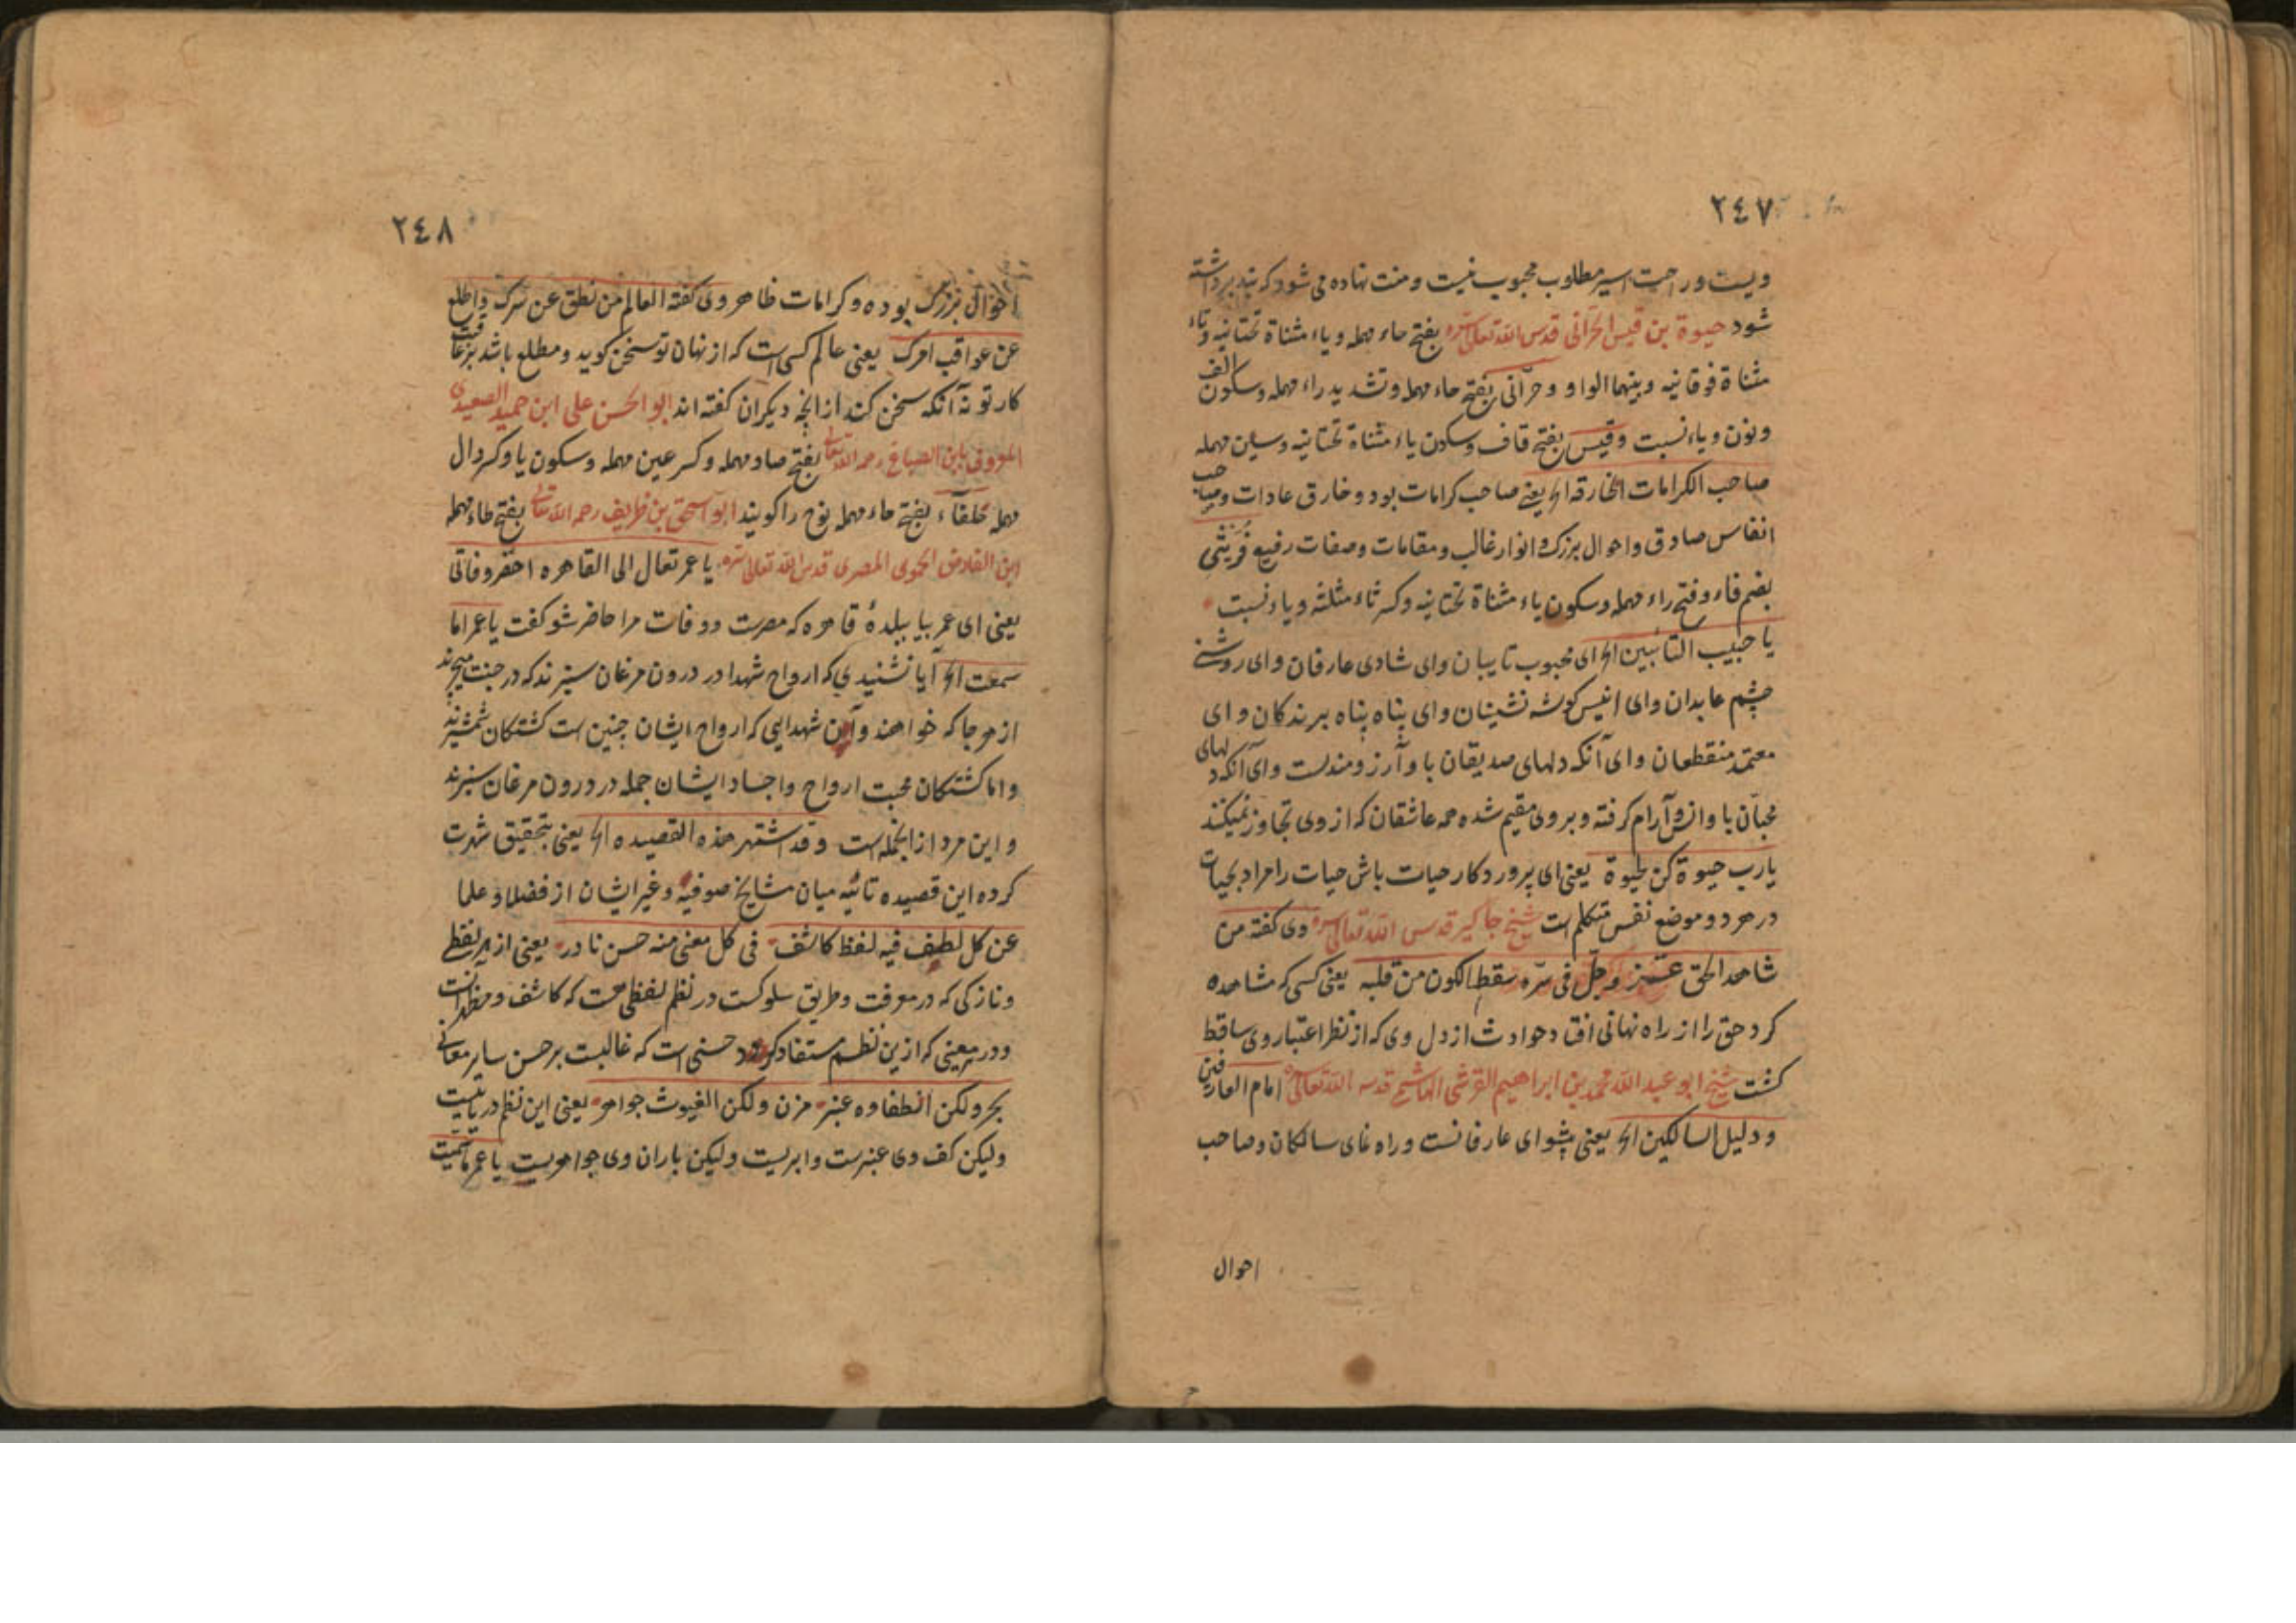 ٢٤٧
ویست و راحت اسیر مطلوب محبوب نیست و منت نهاده می شود که بند برداشته
شود حیوة بن قیس الحرّانی قدس الله تعالی سره بفتح حاء مهمله و یاء مثناة تحتانیه و تاء
مثناة فوقانیه و بینهما الواو و حرّانی بفتح حاء مهمله و تشدید راء مهمله و سکون الف
و نون و یاء نسبت و قیس بفتح قاف و سکون یاء مثناة تحتانیه و سین مهمله
صاحب الکرامات الخارقه الخ یعنی صاحب کرامات بود و خارق عادات و صاحب
انفاس صادق و احوال بزرک و انوار غالب و مقامات و صفات رفیع فُرَیثی
بضم فاء و فتح راء مهمله و سکون یاء مثناة تحتانیه و کسر ثاء مثلثه و یاء نسبت
یا حبیب التائبین الخ ای محبوب تایبان و ای شادی عارفان و ای روشنی
چشم عابدان و ای انیس کوشه نشینان و ای پناه پناه برندکان و ای
معتمد منقطعان و ای آنکه دلهای صدیقان با و آرزومندست و ای آنکه دلهای
محبّان با و انس و آرام کرفته و بر وی مقیم شده همه عاشقان که از وی تجاوز نمیکنند
یا رب حیوة کن لحیوة یعنی ای پروردکار حیات باش حیات را مراد بحیات
در هر دو موضع نفس متکلم است شیخ جاکیر قدس الله تعالی سره وی کفته من
شاهد الحق عزّ و جلّ فی سرّه سقط الکون من قلبه یعنی کسی که مشاهده
کرد حق را از راه نهانی افتاد حوادث از دل وی که از نظر اعتبار وی ساقط
کشت شیخ ابو عبد الله محمد بن ابراهیم القرشی الهاشمی قدسه الله تعالی امام العارفین
و دلیل السالکین الخ یعنی پیشوای عارفانست و راه نمای سالکان و صاحب
احوال
٢٤٨
احوال بزرک بوده و کرامات ظاهر وی کفته العالم من نطق عن سرک و اطلع
عن عواقب امرک یعنی عالم کسی است که از نهان تو سخن کوید و مطلع باشد بر عاقبت
کار تو نه آنکه سخن کند از آنچه دیکران کفته اند ابو الحسن علی ابن حمید الصعیدی
المعروف بابن الصباغ رحمه الله تعالی بفتح صاد مهمله و کسر عین مهمله و سکون یا و کسر دال
مهمله حلقاء بفتح حاء مهمله نوح را کویند ابو اسحق بن طریف رحمه الله تعالی بفتح طاء مهمله
ابن الفارض الحموی المصری قدس الله تعالی سره یا عمر تعال الی القاهره احضر وفاتی
یعنی ای عمر بیا ببلدهٔ قاهره که مصرست و وفات مرا حاضر شو کفت یا عمر اما
سمعت الخ آیا نشنیدی که ارواح شهدا در درون مرغان سبزند که در جنت میچرند
از هر جا که خواهند و آین شهدایی که ارواح ایشان چنین است کشتکان شمشیرند
و اما کشتکان محبت ارواح و اجساد ایشان جمله در درون مرغان سبزند
و این مرد از انجمله است و قد اشتهر هذه القصیده الخ یعنی بتحقیق شهرت
کرده این قصیده تائیه میان مشایخ صوفیه و غیر ایشان از فضلا و علما
عن کل لطیف فیه لفظ کاشف فی کل معنی منه حسن نادر یعنی از هر لفظی
و نازکی که در معرفت و طریق سلوکست در نظم لفظی هست که کاشف و مظهرانست
و در هر معنی که ازین نظم مستفاد کردد حسنی است که غالبست بر حسن سایر معانی
بحر ولکن الطفاوه عنبر مزن ولکن الغیوث جواهر یعنی این نظم دریاییست
ولیکن کف وی عنبرست و ابریست ولیکن باران وی جواهریست یا عمر ما سمیت